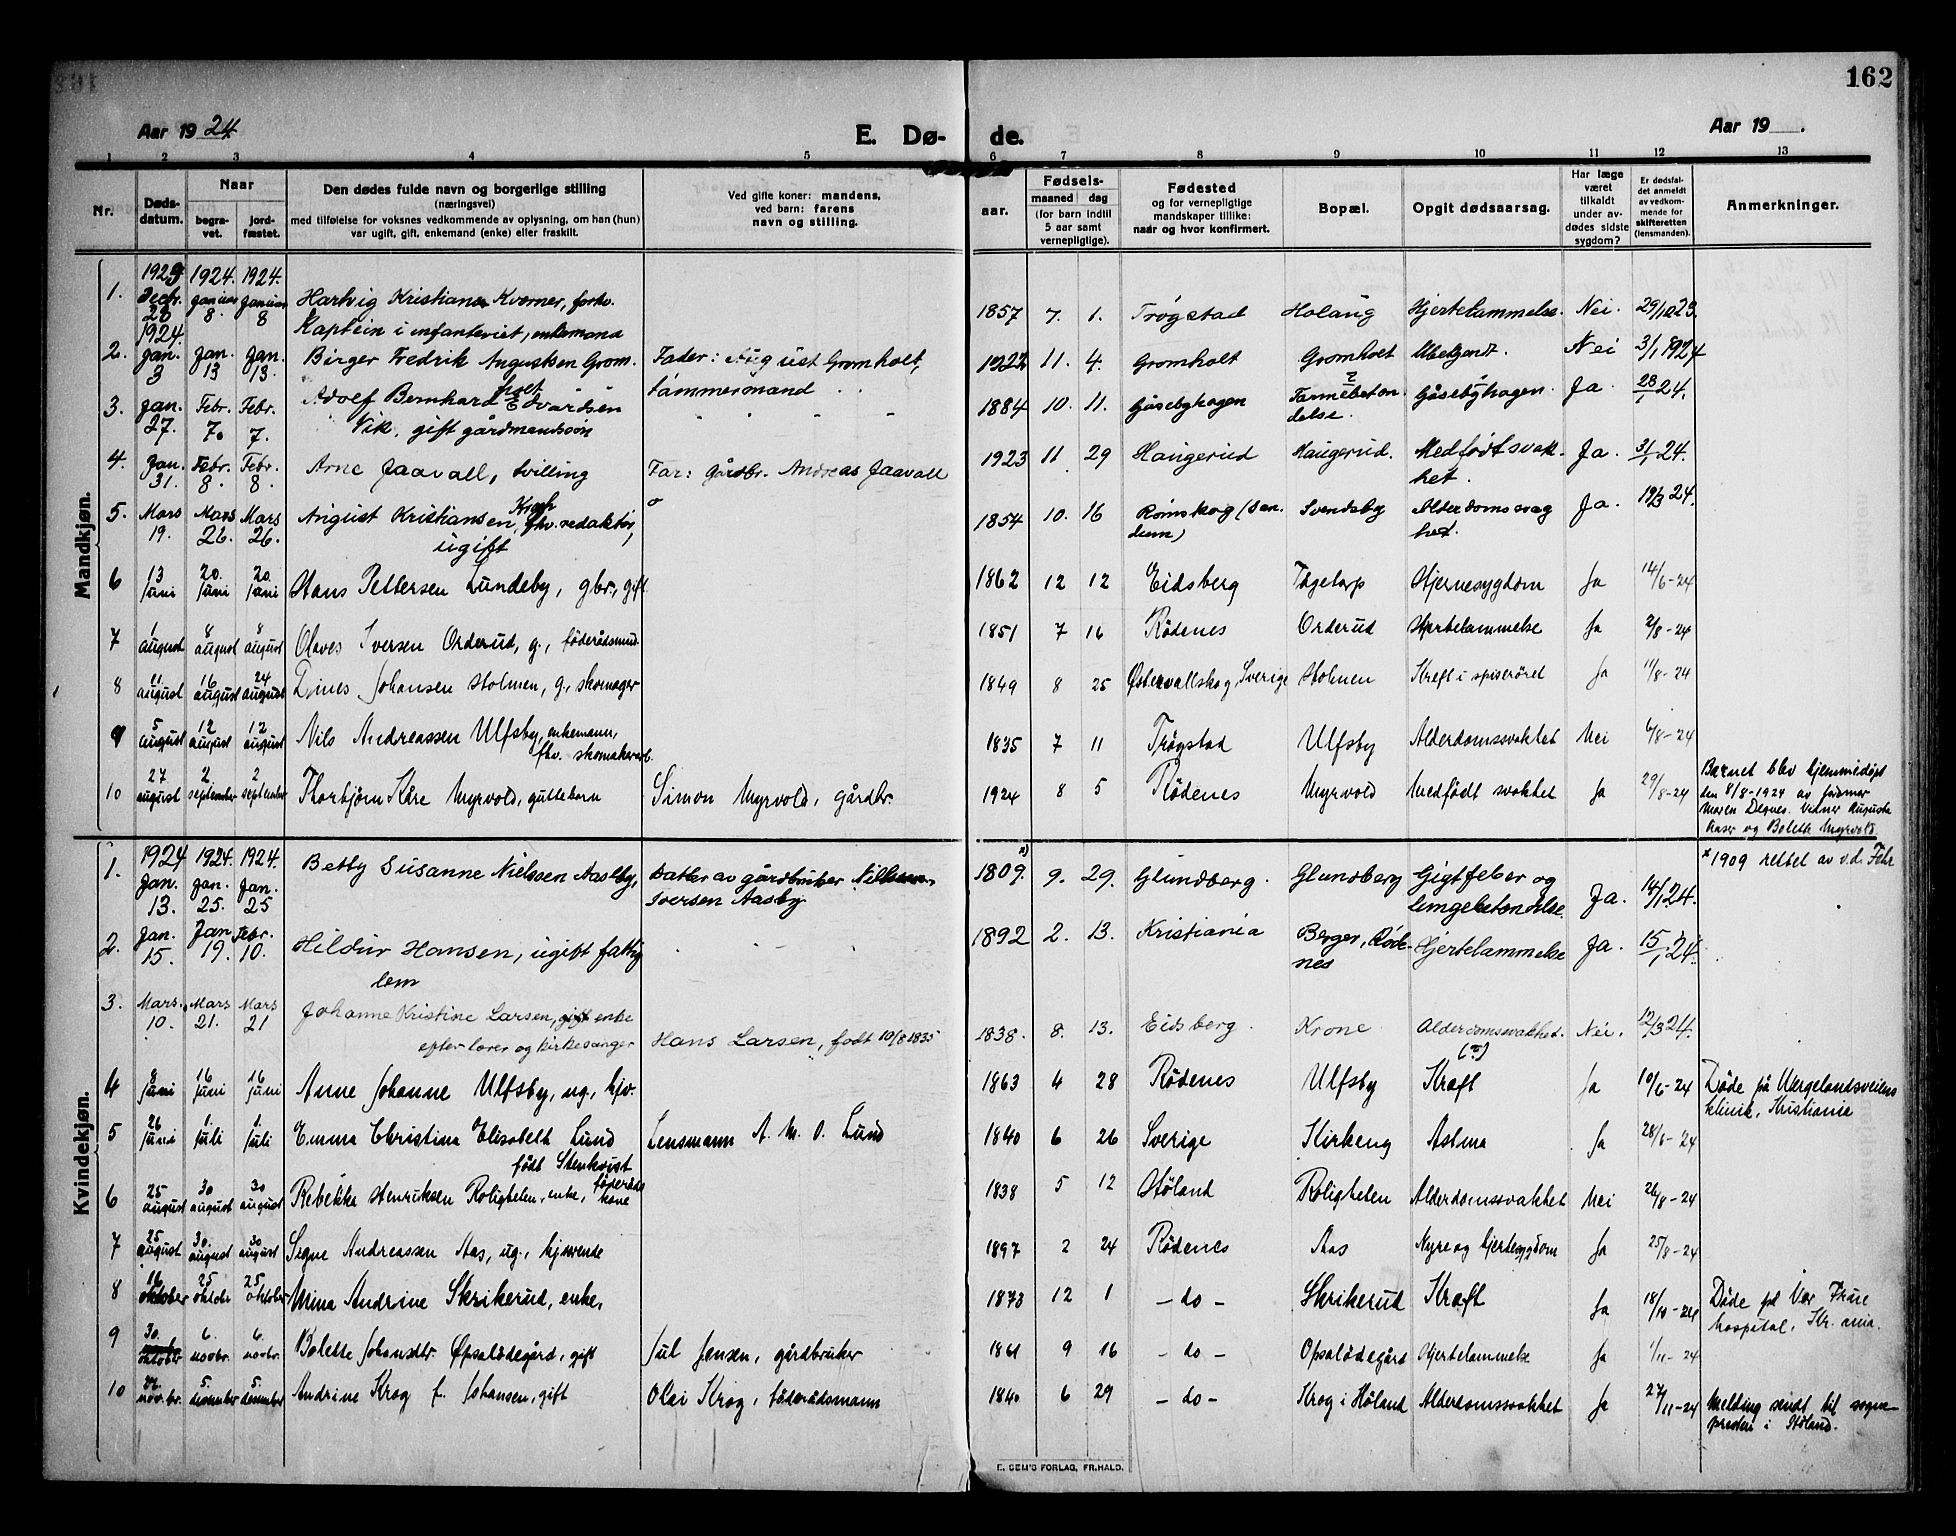 162
Aar 1924
E. Dø-
de.
Aar 19 .
1 2 3 4 5 6 7 8 9 10 11 12 13
Nr.
Døds-
datum.
Naar
begra-
vet.
jord-
fæstet.
Den dødes fulde navn og borgerlige stilling
(næringsvei)
med tilføielse for voksnes vedkommende av oplysning, om han (hun)
var ugift, gift, enkemand (enke) eller fraskilt.
Ved gifte koner: mandens,
ved barn: farens
navn og stilling.
aar.
Fødsels-
maaned dag
(for barn indtil
5 aar samt
vernepligtige).
Fødested
og for vernepligtige
mandskaper tillike:
naar og hvor konfirmert.
Bopæl.
Opgit dødsaarsag.
Har læge
været
tilkaldt
under av-
dødes sidste
sygdom?
Er dødsfal-
det anmeldt
av vedkom-
mende for
skifteretten
(lensmanden).
Anmerkninger.
Mandkjøn.
1. 1923 Decbr. 28 1924. Januar 8. 1924. Januar 8 Hartvig Kristian Kværner, forhv.
Kaptein i infanteriet, enkemand
1857 7. 1. Trøgstad Holaug Hjertelammelse. Nei. 29/12 23.
2. 1924. Jan. 3 Jan. 13 Jan. 13. Birger Fredrik Augustsen Grom-
holt
Fader: August Gromholt,
tømmermand
1922 11. 4. Gromholt Gromholt Ubekjendt. Nei 3/1 1924
3. Jan. 27. Febr. 7. Febr. 7. Adolf Bernhard Edvardsen
Vik, gift gårdmandssøn
1884 10. 11. Gåsebyhagen Tarmebeten-
delse. Gåsebyhagen. Ja 28/1 24.
4. Jan. 31. Febr. 8. Febr. 8. Arne Jaavall, tvilling Far: Gårdbr. Andreas Jaavall
1923 11 29 Haugerud Haugerud. Medfødt svak-
het. Ja. 31/1 24.
5. Mars 19. Mars 26. Mars 26. August Kristiansen Krogh, fhv. redaktør,
ugift
1854 10. 16 Rømskog (San-
dem) Svendsby Alderdomssvag
het. Ja. 19/3 24.
6 13 juni 20. juni 20. juni Hans Pettersen Lundeby, gbr., gift
1862 12 12 Eidsberg Tagetorp Hjernesygdom Ja 14/6-24
7 1 august 8 august 8 august Olaves Iversen Orderud, g., føderådsmnd.
1851 7 16 Rødenes Orderud Hjertelammelse Ja 2/8-24
8 11 august 16 august 24 august Dines Johansen Holmen, g., skomager
1849 8 25 Østervallskog, Sverige Holmen Kreft i spiserøret Ja 11/8-24
9 5 august 12 august 12 august Nils Andreassen Ulfsby, enkemann,
fhv. skomakerarb.
1835 7 11 Trøgstad Ulfsby Alderdomssvakhet Nei 6/8-24
10 27 august 2 september 2 september Thorbjørn Kåre Myrvold, guttebarn Simon Myrvold, gårdbr.
1924 8 5 Rødenes Myrvold Medfødt svakhet Ja 29/8-24
Barnet blev hjemmedøpt
den 8/8-1924 av jordmor
Maren Degnes. Vidner Augusta
Aaser og Bolette Myrvold
Kvindekjøn.
1. 1924 Jan. 13. 1924. Jan. 25. 1924. Jan. 25 Betty Susanne Nielssen Aasby, Datter av gårdbruker Nils
Iversen Aasby
x) 1809. 9. 29. Glundberg. Glundsberg Gigtfeber og
lungebetændelse. Ja. 14/1 24.
x 1909 rettet av v.d. Fehr
2. Jan. 15. Jan 19. Febr. 10. Hildur Hansen, ugift fattig
lem
1892 2. 13. Kristiania Berger, Røde-
nes Hjertelammelse Ja. 15/1 24.
3. Mars. 10. Mars 21. Mars 21 Johanne Kristine Larsen, gift enke
efter lærer og kirkesanger Hans Larsen, født 10/8 1835
1838. 8. 13. Eidsberg. Krone Alderdomssvakhet. Nei. 12/3 24.
4 8 juni 16 juni 16 juni Anne Johanne Ulfsby, ug., hjv.
1863 4 28 Rødenes Ulfsby Kræft Ja 10/6-24 Døde på Wergelandsveiens
klinik, Kristiania
5 26 juni 1. juli 1. juli Emma Christina Elisabeth Lund
født Stenkvist Lensmann A. M. O. Lund
1840 6 26 Sverige Kirkeng Astma Ja 28/6-24
6 25 august 30 august 30 august Rebekka Henriksen Roligheten, enke, føderåds
kone
1838 5 12 Høland Roligheten Alderdomssvakhet Nei 26/8-24
7 25 august 30. august 30 august Signe Andreassen Aas, ug., hjvrende
1897 2 24 Rødenes Aas Nyre og hjertesygdom Ja 25/8-24
8 16 oktober 25 oktobr 25 oktober Mina Andrine Skrikerud, enke,
1873 12 1 - do - Skrikerud Kræft Ja 18/10-24 Døde på Vor Frue
hospital, Kr.ania.
9 30. oktober 6. novbr. 6. novbr. Bolette Johansdtr. Opsalødegård, gift Jul Jensen, gårdbruker
1861 9 16 - do - Opsalødegård Hjertelammelse Ja 1/11-24
10 novbr. 5. desember 5. desember Andrine Krog f. Johansen, gift Olai Krog, føderådsmann
1840 6 29 - do - Krog i Høland Alderdomssvakhet Ja 27/11-24 Melding sendt til sogne-
presten i Høland.
E. SEM'S FORLAG, FR.HALD.